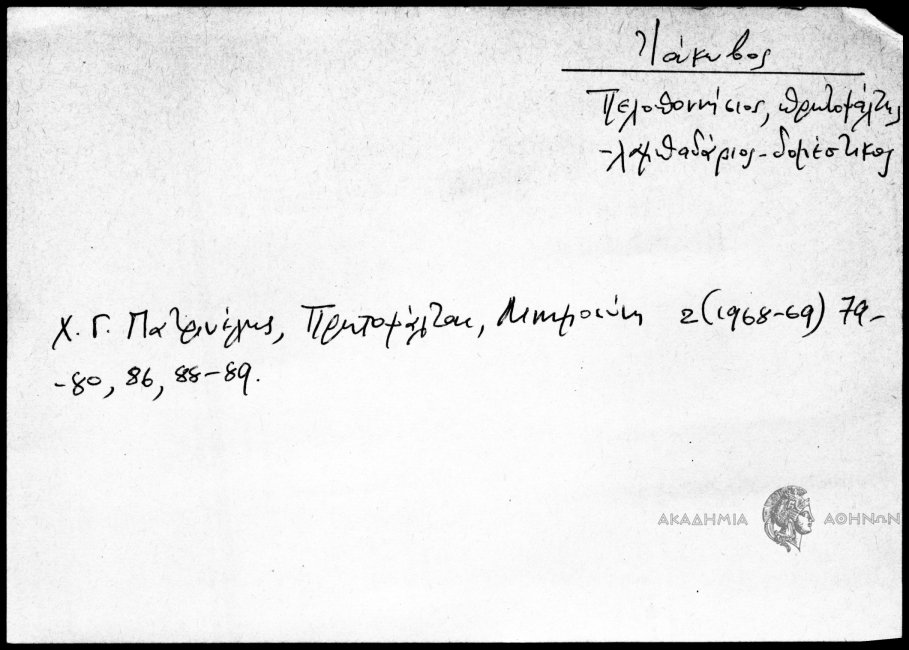 Ἰάκωβος
Πελοποννήσιος, πρωτοψάλτης
-λαμπαδάριος-δομέστικος
Χ. Γ. Πατρινέλης, Πρωτοψάλται, Μνημοσύνη 2(1968-69) 79-
-80, 86, 88-89.
ΑΚΑΔΗΜΙΑ ΑΘΗΝΩΝ